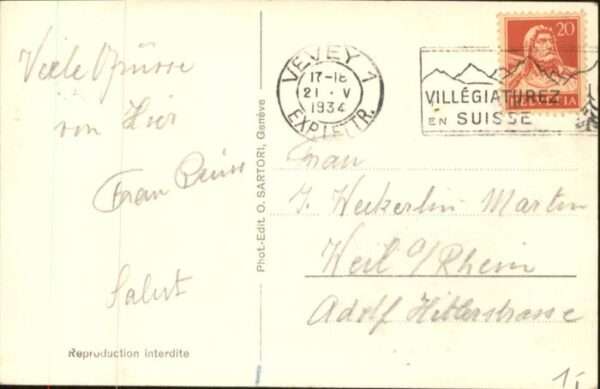 Viele Grüsse
von Hier
Frau
Salut
Reproduction interdite
Phot.-Edit. O. SARTORI, Genève
VEVEY 1
17-18
21. V
1934
EXP. LETTR.
VILLÉGIATUREZ
EN SUISSE
20
HELVETIA
Frau
J. Weckerlin Martin
Weil a/Rhein
Adolf Hitlerstrasse